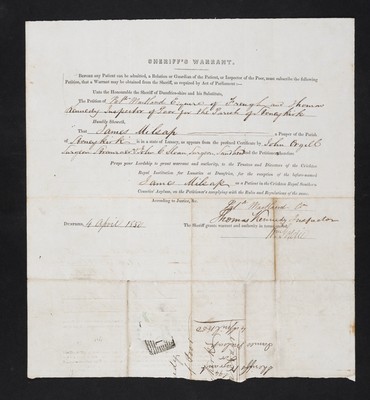 SHERIFF'S WARRANT.
BEFORE any Patient can be admitted, a Relation or Guardian of the Patient, or Inspector of the Poor, must subscribe the following
Petition, that a Warrant may be obtained from the Sheriff, as required by Act of Parliament:—
Unto the Honourable the Sheriff of Dumfries-shire and his Substitutes,
The Petition of Robt Maitland Esquire of and Thomas
Kennedy Inspector of Poor for the Parish of Stoneykirk
Humbly Sheweth,
That James Mileap a Pauper of the Parish
of Stoneykirk is in a state of Lunacy, as appears from the produced Certificate by John Orgill
Surgeon Stranraer & John Surgeon and the Petitioners
Prays your Lordship to grant warrant and authority, to the Trustees and Directors of the Crichton
Royal Institution for Lunatics at Dumfries, for the reception of the before-named
James Mileap as a Patient in the Crichton Royal Southern
Counties' Asylum, on the Petitioner's complying with the Rules and Regulations of the same.
According to Justice, &c.
Robt Maitland
Thomas Kennedy Inspector
DUMFRIES, 4 April 1850. The Sheriff grants warrant and authority in terms
Sheriff's Warrant
James
4 April 1850